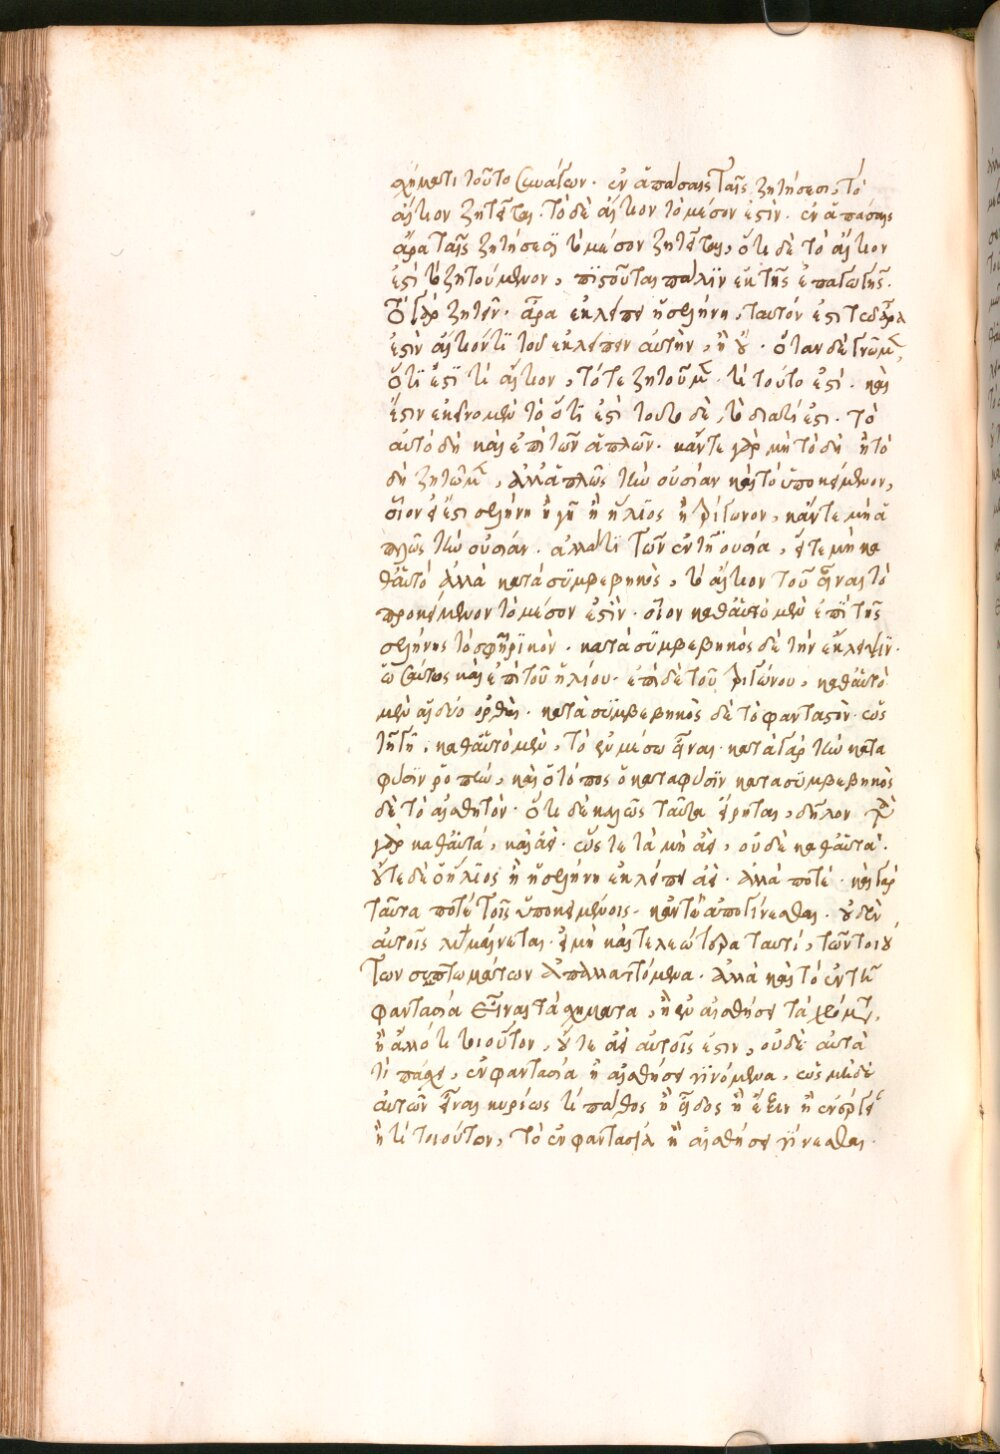 χήματι τοῦτο συνάγων. ἐν ἁπάσαις ταῖς ζητήσεσι, τὸ
αἴτιον ζητεῖται. τὸ δὲ αἴτιον τὸ μέσον ἐστίν. ἐν ἁπάσαις
ἄρα ταῖς ζητήσεσι τὸ μέσον ζητεῖται, ὅτι δὲ τὸ αἴτιον
ἐστὶ τὸ ζητούμενον, πιστοῦται πάλιν ἐκ τῆς ἐπαγωγῆς.
τὸ γὰρ ζητεῖν. ἆρα ἐκλείπει ἡ σελήνη, ταυτόν ἐστι τῶ ἆρα
ἐστὶν αἴτιόν τι τοῦ ἐκλείπειν αὐτὴν, ἢ οὔ. ὅταν δὲ γνῶμεν,
ὅτι ἔστι τί αἴτιον, τότε ζητοῦμεν. τί τοῦτο ἐστί. καὶ
ἔστιν ἐκεῖνο μὲν τὸ ὅτι ἐστὶ τοῦτο δὲ, τὸ διατί ἐστι. τὸ
αὐτὸ δὴ καὶ ἐπὶ τῶν ἁπλῶν. κἄντε γὰρ μὴ τὸ δὴ ἢ τὸ
δὴ ζητῶμεν, ἀλλ' ἁπλῶς τὴν οὐσίαν καὶ τὸ ὑποκείμενον,
οἷον εἰ ἔστι σελήνη ἢ γῆ ἢ ἥλιος ἢ τρίγωνον, κἄντε μὴ ἁ
πλῶς τὴν οὐσίαν. ἀλλά τι τῶν ἐν τῆ οὐσία, εἴτε μὴ κα
θαὑτὸ ἀλλὰ κατὰ συμβεβηκὸς, τὸ αἴτιον τοῦ εἶναι τὸ
προκείμενον τὸ μέσον ἐστίν. οἷον καθαὑτὸ μὲν ἐπὶ τῆς
σελήνης τὸ σφαιρικόν. κατὰ συμβεβηκὸς δὲ τὴν ἔκλειψιν.
ὡσαύτως καὶ ἐπὶ τοῦ ἡλίου. ἐπὶ δὲ τοῦ τριγώνου, καθαὑτὸ
μὲν αἱ δύο ὀρθαὶ. κατὰ συμβεβηκὸς δὲ τὸ φανταστὸν. ὡς
τῆ γῆ, καθαὑτὸ μὲν, τὸ ἐν μέσω εἶναι. κατὰ γὰρ τὴν κατα
φύσιν ῥοπὴν, καὶ ὁ τόπος ὁ καταφύσιν κατὰ συμβεβηκὸς
δὲ τὸ αἰσθητόν. ὅτι δὲ καλῶς ταῦτα εἴρηται, δῆλον
γὰρ καθαὑτά, καὶ ἀεί. ὥστε τὰ μὴ ἀεί, οὐδὲ καθαὑτά.
οὔτε δὲ ὁ ἥλιος ἢ ἡ σελήνη ἐκλείπει ἀεί. ἀλλά ποτέ. καὶ γὰρ
ταῦτα ποτὲ τοῖς ὑποκειμένοις. κἄντε ἀπογίνεσθαι. οὐδὲν
αὐτοῖς λυμαίνεται. εἰ μὴ καὶ τελεώτερα ταυτί, τῶν τοιού
των συμπτωμάτων ἀπαλλαττόμενα. ἀλλὰ καὶ τὸ ἐν τῆ
φαντασία εἶναι τὰ σχήματα, ἢ ἐν αἰσθήσει τὰ
ἢ ἄλλό τι τοιοῦτον, οὔτε ἀεὶ αὐτοῖς ἐστιν, οὐδὲ αὐτὰ
τί πάσχει, ἐν φαντασία ἢ αἰσθήσει γινόμενα, ὡς μηδὲ
αὐτῶν εἶναι κυρίως τί πάθος ἢ εἶδος ἢ ἕξιν ἢ ἐνέργειαν
ἢ τί τοιοῦτον, τὸ ἐν φαντασία ἢ αἰσθήσει γίνεσθαι.